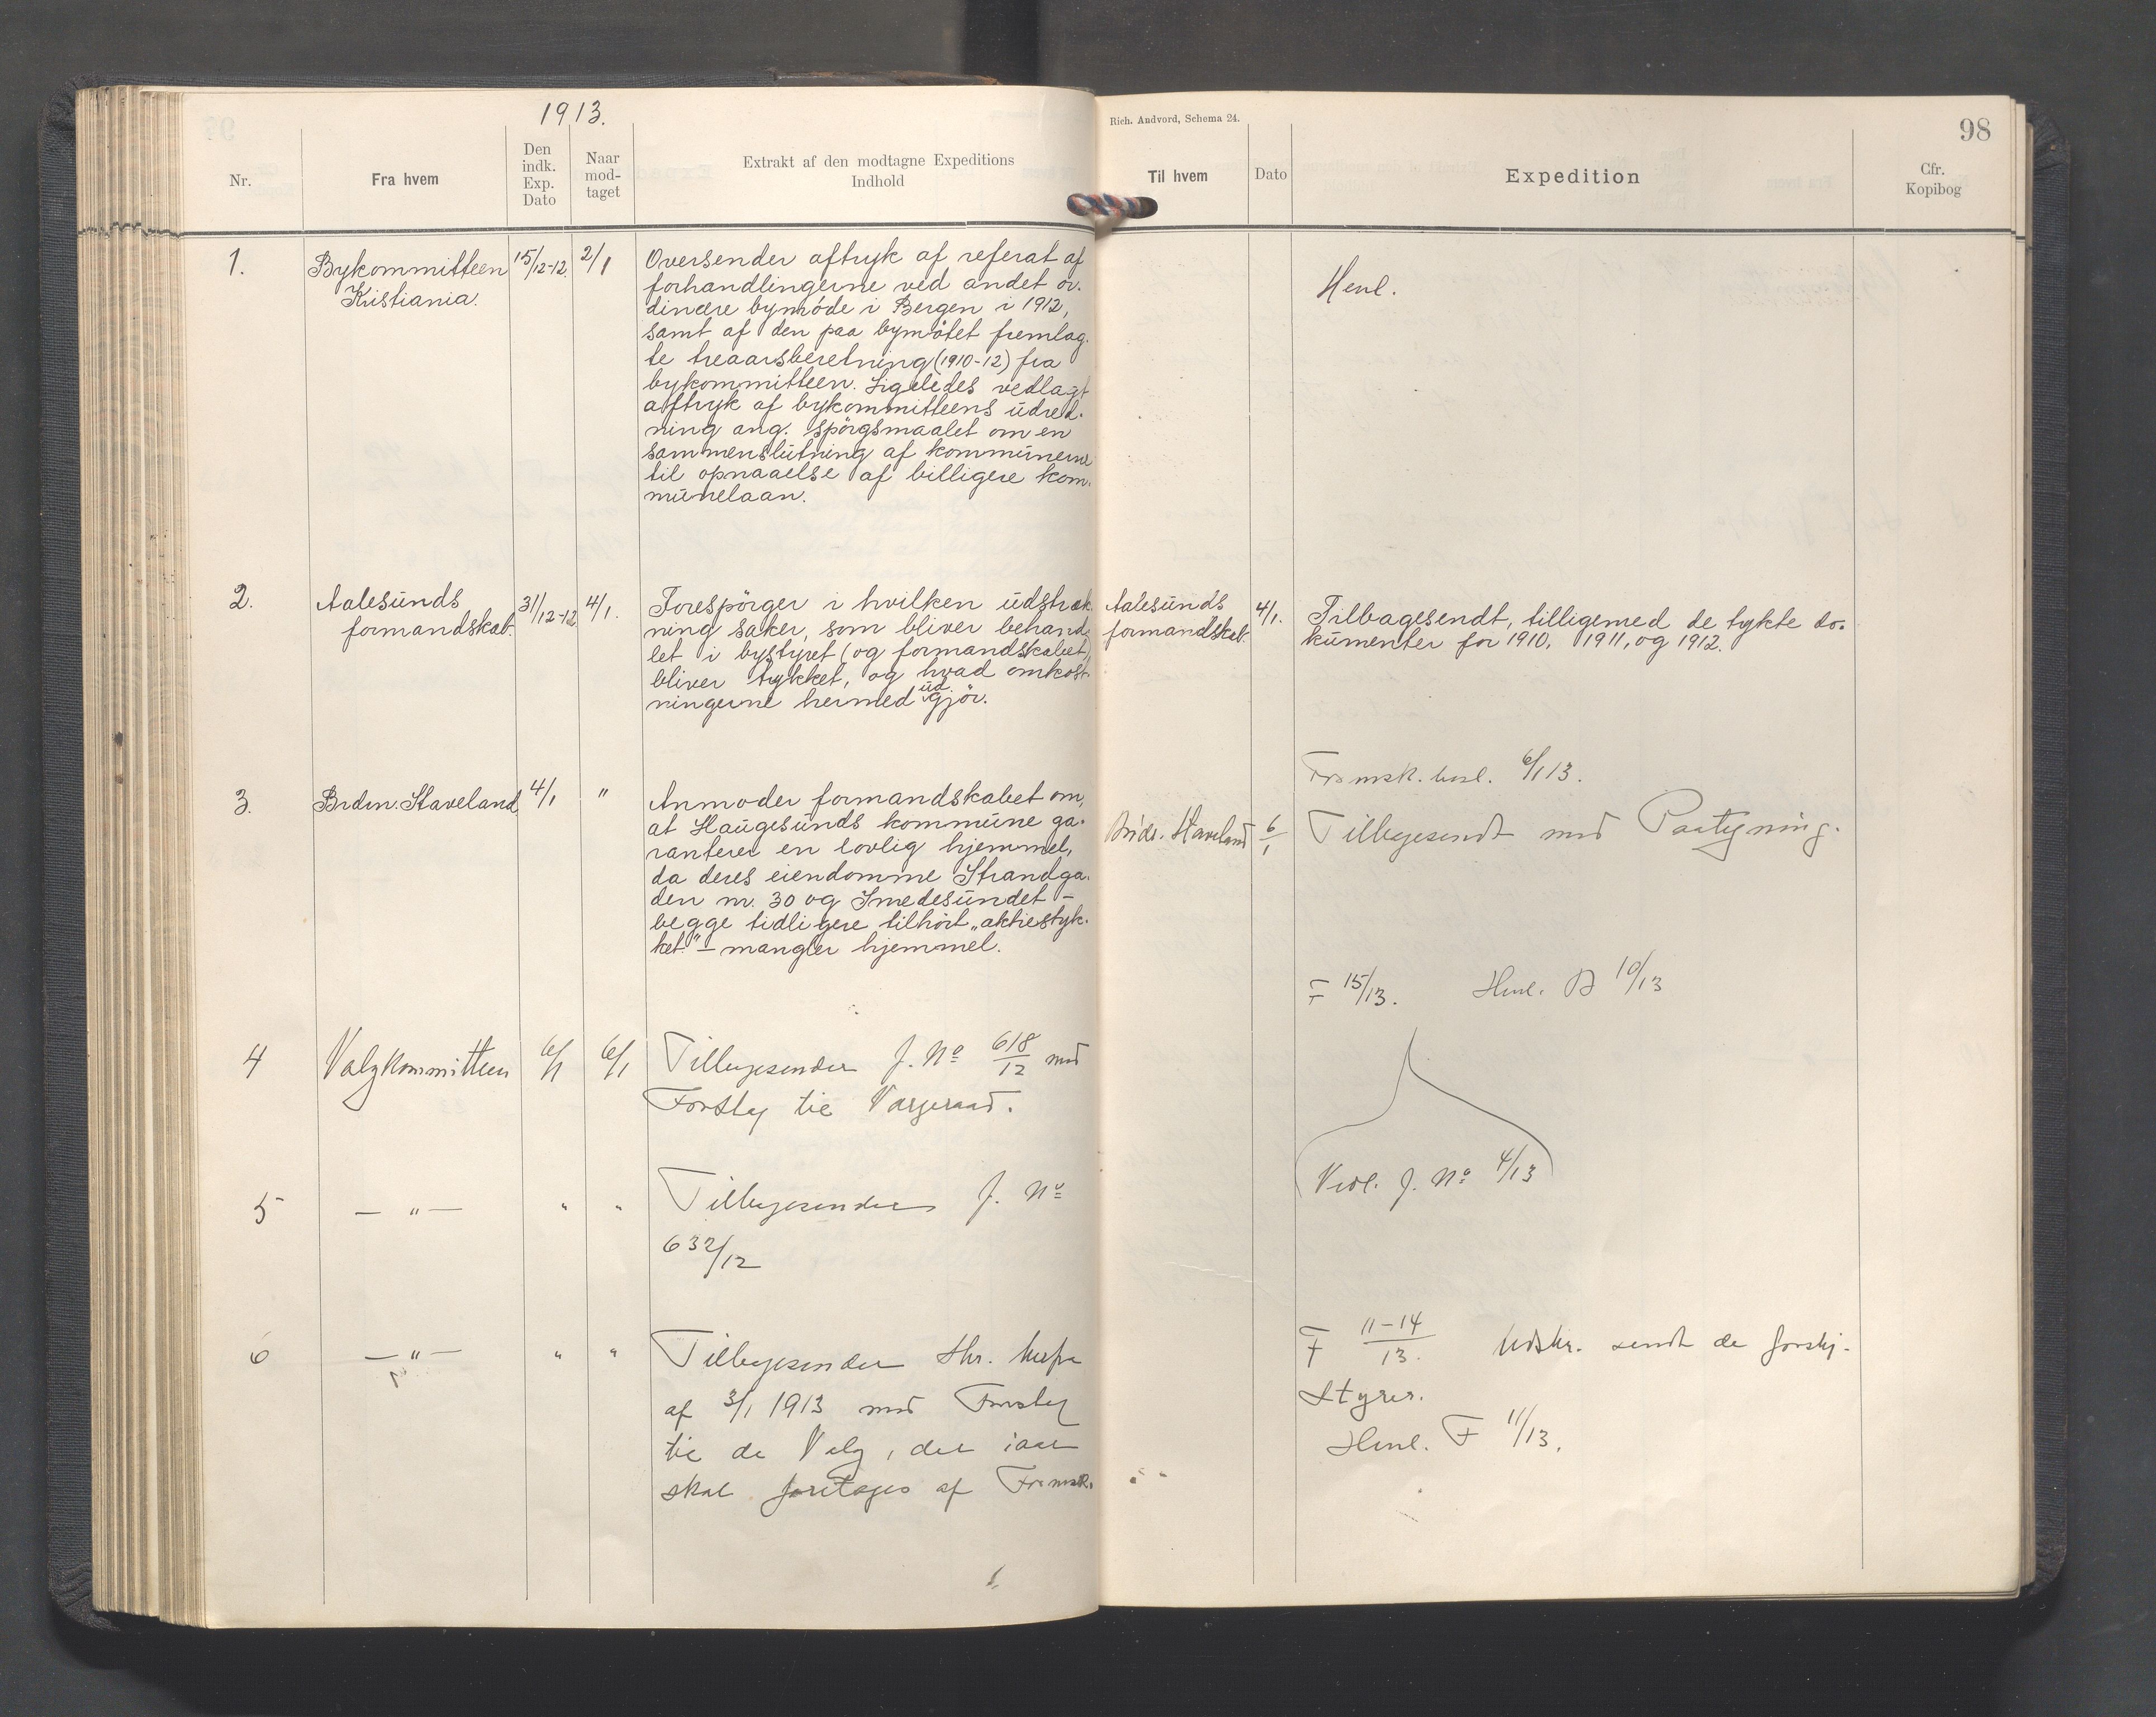 1913.
Rich. Andvord, Schema 24.
98
Nr.
Fra hvem
Den indk. Exp. Dato
Naar mod-taget
Extrakt af den modtagne Expeditions
Indhold
Til hvem
Dato
Expedition
Cfr.
Kopibog
1.
Bykommitteen
Kristiania.
15/12-12.
2/1
Oversender aftryk af referat af
forhandlingerne ved andet or-
dinære bymöde i Bergen i 1912,
samt af den paa bymötet fremlag-
te treaarsberetning (1910-12) fra
bykommitteen. Ligeledes vedlagt
aftryk af bykommitteens udred-
ning ang. spörgsmaalet om en
sammenslutning af kommunerne
til opnaaelse af billigere kom-
munelaan.
Henl.
2.
Aalesunds
formandskab.
31/12-12
4/1.
Forespörger i hvilken udstræk-
ning saker, som bliver behand-
let i bystyret (og formandskabet),
bliver trykket, og hvad omkost-
ningerne hermed udgjör.
Aalesunds
formandskab.
4/1.
Tilbagesendt, tilligemed de trykte do-
kumenter for 1910, 1911, og 1912.
3.
Brdr. Staveland
4/1
"
Anmoder formandskabet om,
at Haugesunds kommune ga-
ranterer en lovlig hjemmel,
da deres eiendomme Strandga-
den nr. 30 og Smedesundet –
begge tidligere tilhört „aktiestyk-
ket" – mangler hjemmel.
Brdr. Staveland
6/1
Formsk. besl. 6/1 13.
Tilbagesendt med Paategning.
F 15/13. Henl. B 10/13
4
Valgkommitteen
6/1
6/1
Tilbagesender J. No 618/12 med
Forslag til Vergeraad.
Vedl. J. No 4/13
5
— " —
"
"
Tilbagesender J. No
632/12
6
— " —
"
"
Tilbagesender Skr.
af 3/1 1913 med Forslag
til de Valg, der iaar
skal foretages af Formsk.
F 11-14/13. Udskr. sendt de forskj.
Styrer.
Henl. F 11/13.